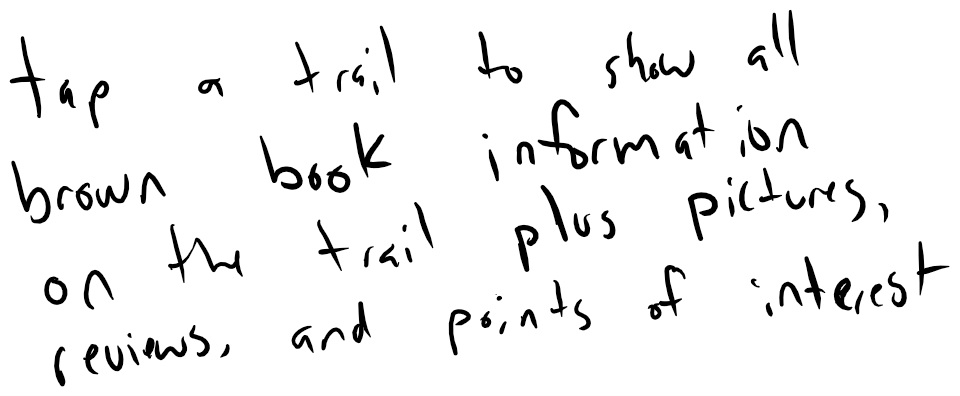 tap a trail to show all
brown book information
on the trail plus pictures,
reviews, and points of interest